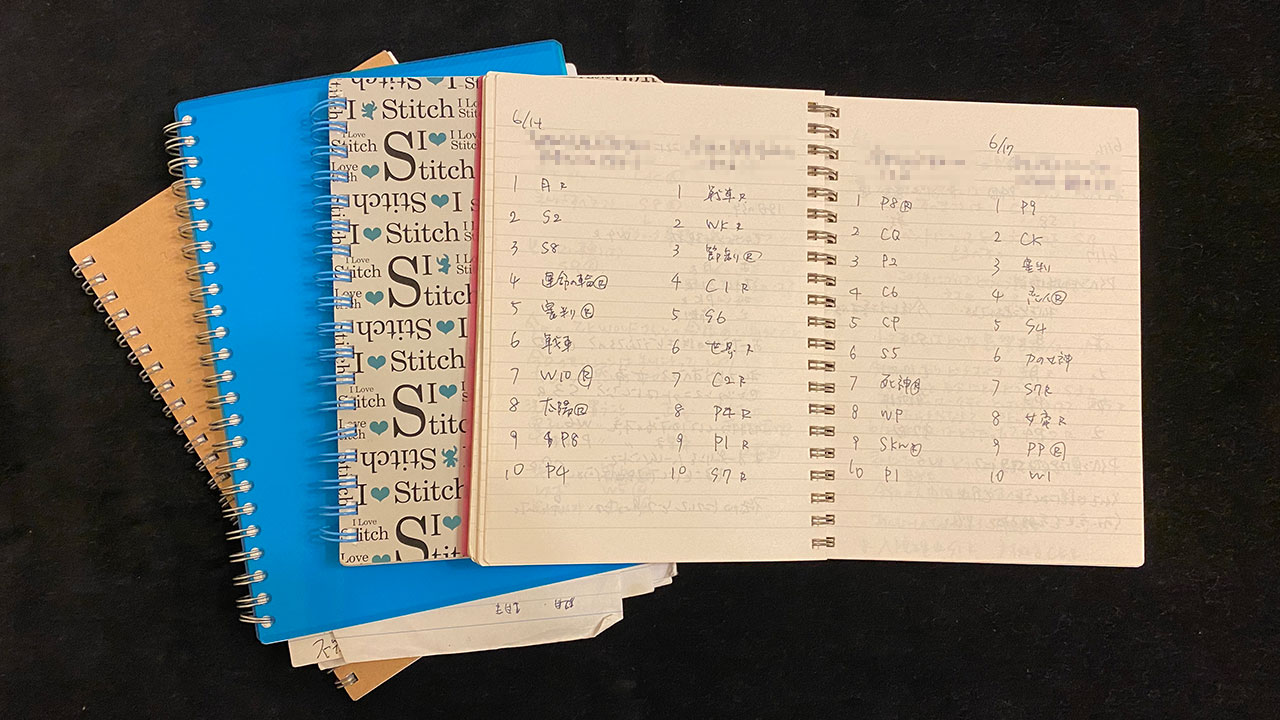 6/14
1 月 R
2 S2
3 S8
4 運命の輪Ⓡ
5 審判Ⓡ
6 戦車
7 W10 Ⓡ
8 太陽Ⓡ
9 P8
10 P4
1 戦車 R
2 WK R
3 節制Ⓡ
4 C1 R
5 S6
6 世界 R
7 C2 R
8 P4 R
9 P1 R
10 S7 R
1 P8Ⓡ
2 CQ
3 P2
4 C6
5 CP
6 S5
7 死神Ⓡ
8 WP
9 SKnⓇ
10 P1
6/17
1 P9
2 CK
3 審判
4 恋人Ⓡ
5 S4
6 力の女神
7 S7R
8 女帝 R
9 PPⓇ
10 W1
I Stitch
I Love
Stitch
I Love
Stitch
I Stitch
I Stitch
I Love
Stitch
I Love
Stitch
Stitch I
I Stitch
I Love
Stitch
I Love
Stitch
I Stitch
Stitch I
I Stitch
I Love
Stitch
I Stitch
Love